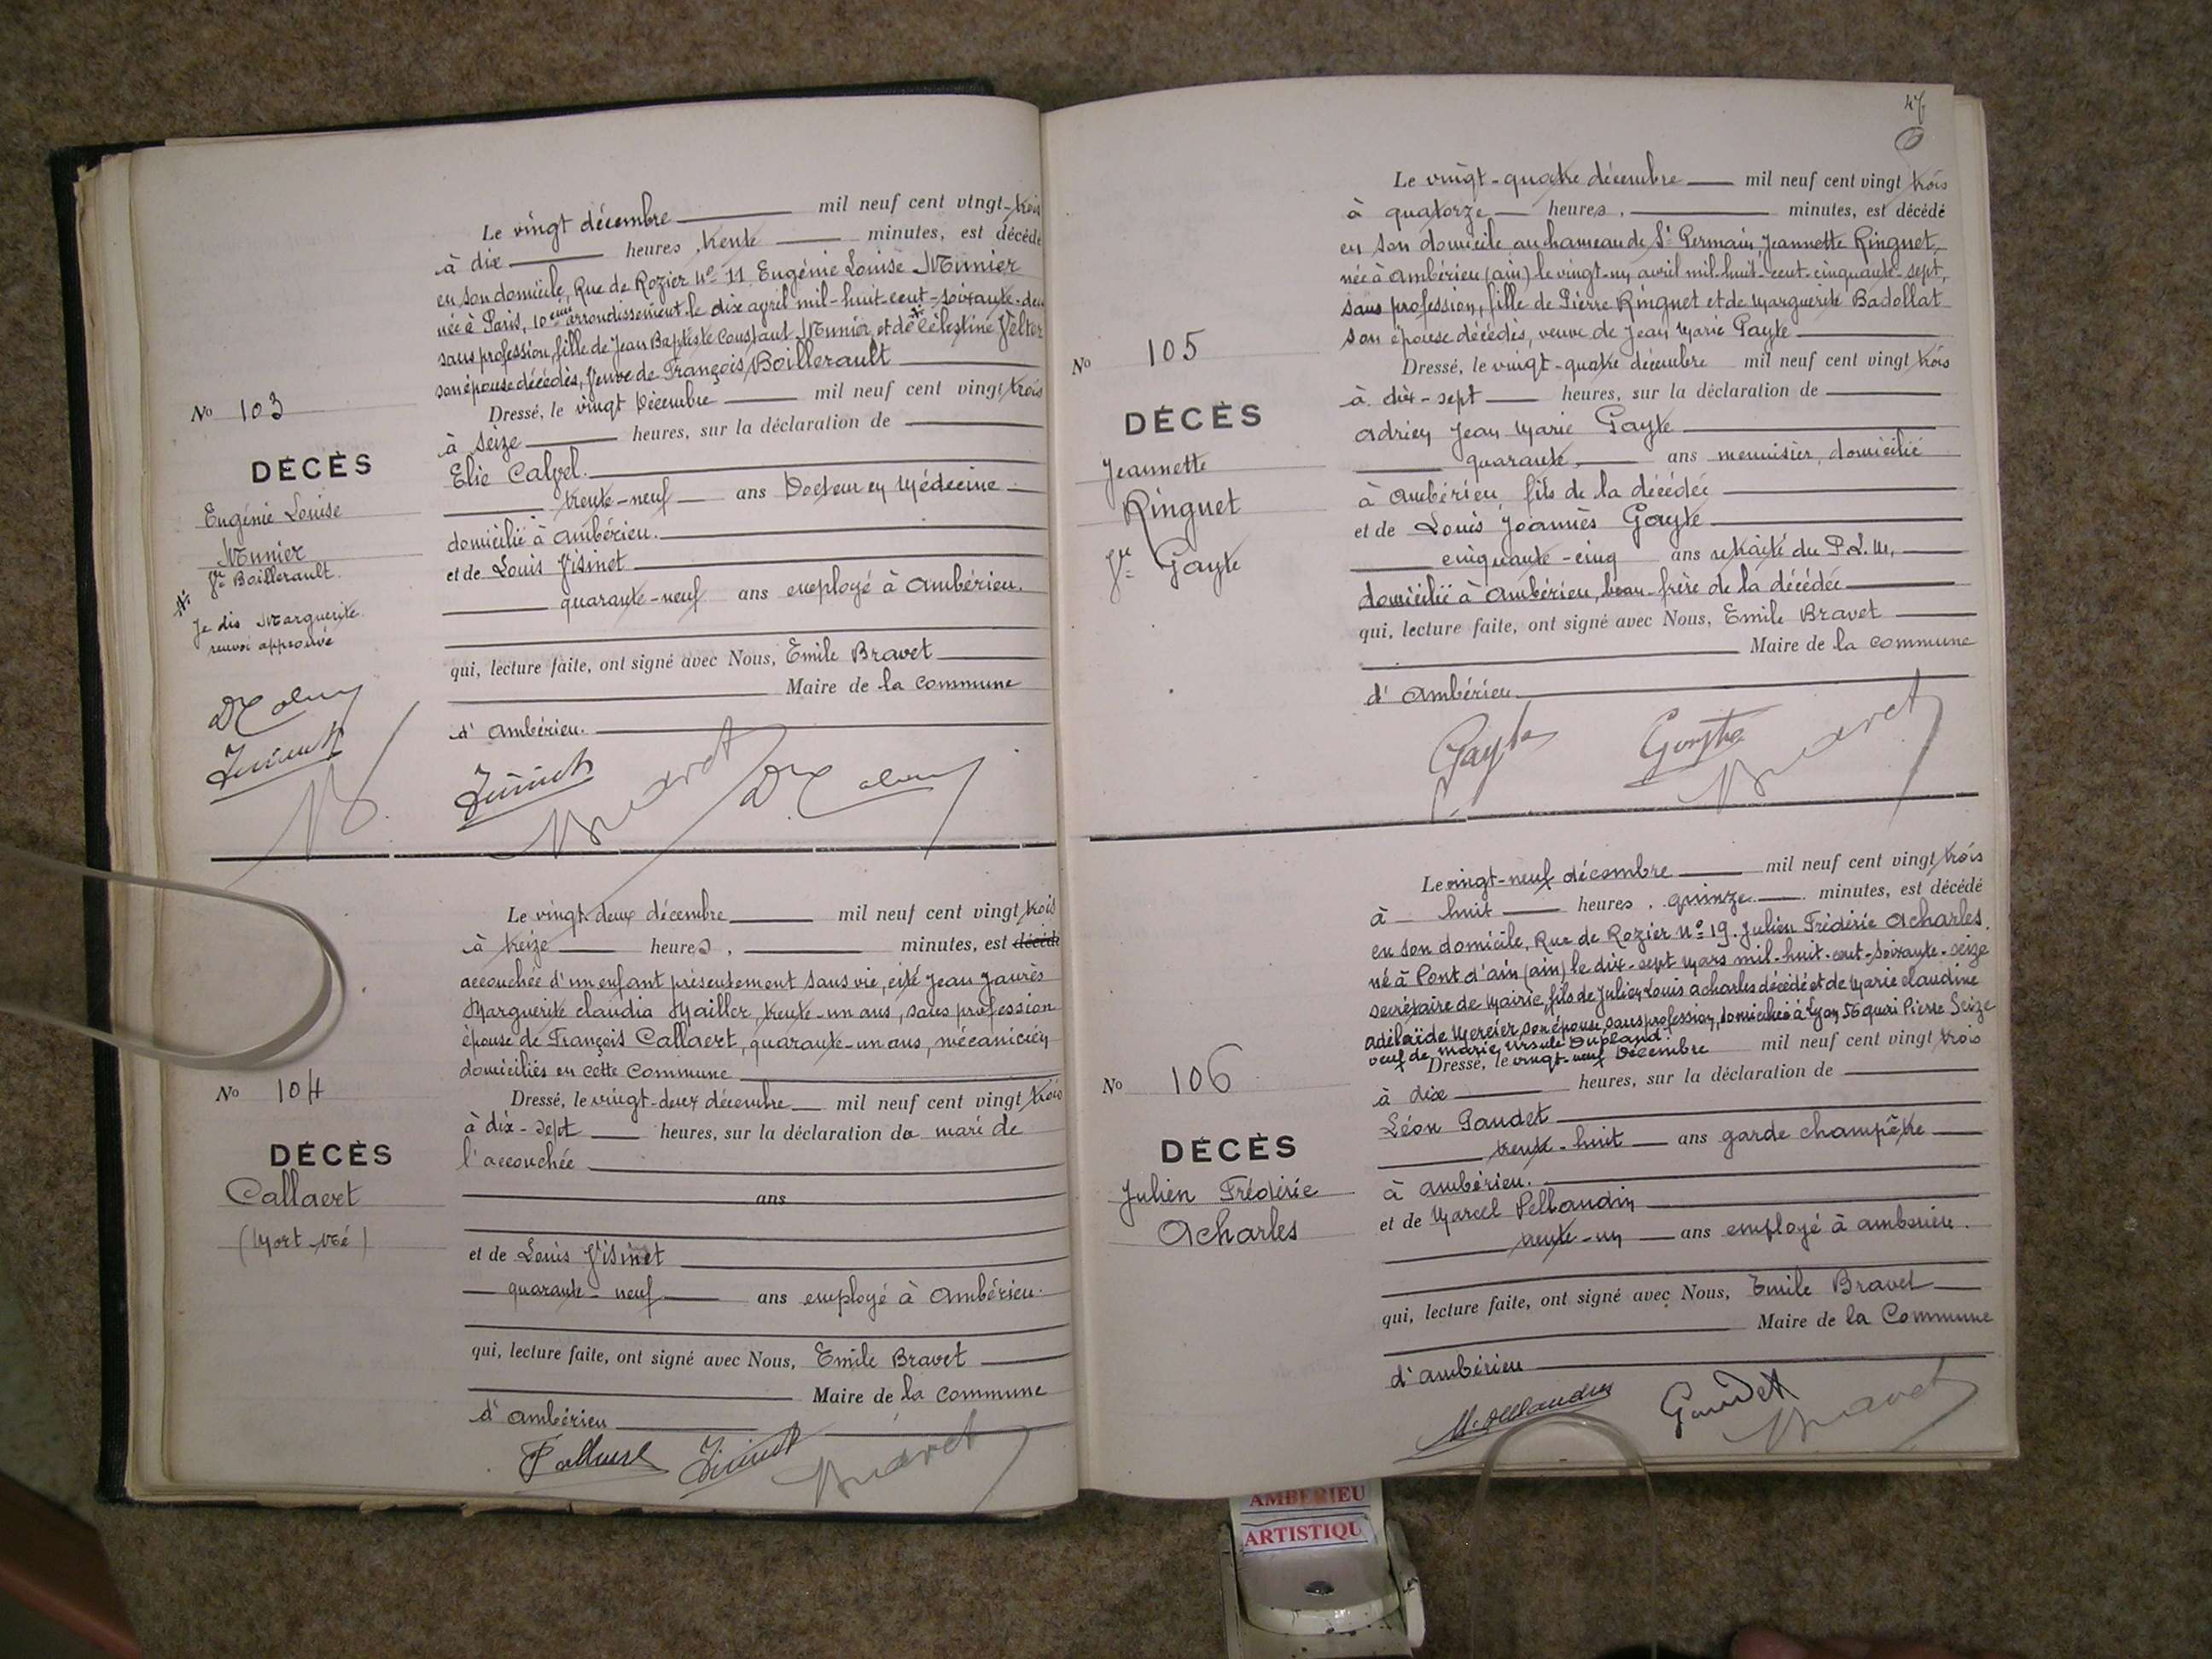 Le vingt décembre mil neuf cent vingt-trois
à dix heures, trente minutes, est décédé
en son domicile, Rue de Rozier No 11. Eugénie Louise Munier
née à Paris, 10ème arrondissement le dix avril mil-huit-cent-soixante-deux
sans profession, fille de Jean Baptiste Constant Munier, et de Célestine Velter
son épouse décédés, Veuve de François Boillerault
No 103
DÉCÈS
Eugénie Louise
Munier
Vve Boillerault
Je dis Marguerite
renvoi approuvé
Dressé, le vingt Décembre mil neuf cent vingt trois
à seize heures, sur la déclaration de
Elie Calvel.
trente-neuf ans Docteur en Médecine
domicilié à Ambérieu.
et de Louis Visinet
quarante-neuf ans employé à Ambérieu.
qui, lecture faite, ont signé avec Nous, Emile Bravet
Maire de la Commune
d' Ambérieu.
Bravet
Le vingt deux décembre mil neuf cent vingt trois
à treize heures, minutes, est décédé
accouchée d'un enfant présentement sans vie, cité Jean Jaurès
Marguerite Claudia Mailler, trente-un ans, sans profession
épouse de François Callaert, quarante-un ans, mécanicien
domiciliés en cette Commune
No 104
DÉCÈS
Callaert
(Mort-né)
Dressé, le vingt-deux décembre mil neuf cent vingt trois
à dix-sept heures, sur la déclaration du mari de
l'accouchée
ans
et de Louis Visinet
quarante-neuf ans employé à Ambérieu.
qui, lecture faite, ont signé avec Nous, Emile Bravet
Maire de la Commune
d' Ambérieu
Bravet
47
Le vingt-quatre décembre mil neuf cent vingt trois
à quatorze heures, minutes, est décédé
en son domicile au hameau de St Germain, Jeannette Ringuet,
née à Ambérieu (ain) le vingt-un avril mil-huit-cent-cinquante-sept,
sans profession, fille de Pierre Ringuet et de Marguerite Badollat
son épouse décédés, veuve de Jean Marie Gayte
No 105
DÉCÈS
Jeannette
Ringuet
Vve Gayte
Dressé, le vingt-quatre décembre mil neuf cent vingt trois
à dix-sept heures, sur la déclaration de
Adrien Jean Marie Gayte
quarante, ans menuisier, domicilié
à Ambérieu, fils de la décédée
et de Louis Joannès Gayte
cinquante-cinq ans retraité du P.L.M,
domicilié à Ambérieu, beau-frère de la décédée
qui, lecture faite, ont signé avec Nous, Emile Bravet
Maire de la Commune
d' Ambérieu.
Gayte Gayte Bravet
Le vingt-neuf décembre mil neuf cent vingt trois
à huit heures, quinze minutes, est décédé
en son domicile, Rue de Rozier No 19. Julien Frédéric Acharles
né à Pont d'ain (ain) le dix-sept Mars mil-huit-cent-soixante-seize
secrétaire de Mairie, fils de Julien Louis Acharles décédé et de Marie Claudine
Adélaïde Mercier, son épouse, sans profession, domiciliée à Lyon, 56 quai Pierre Seize
veuf de Marie Ursule Dupland.
No 106
DÉCÈS
Julien Frédéric
Acharles
Dressé, le vingt-neuf Décembre mil neuf cent vingt trois
à dix heures, sur la déclaration de
Léon Gaudet
trente-huit ans garde champêtre
à Ambérieu.
et de Marcel Pellaudin
trente-un ans employé à Ambérieu.
qui, lecture faite, ont signé avec Nous, Emile Bravet
Maire de la Commune
d'Ambérieu
M. Pellaudin Gaudet Bravet
AMBERIEU
ARTISTIQU